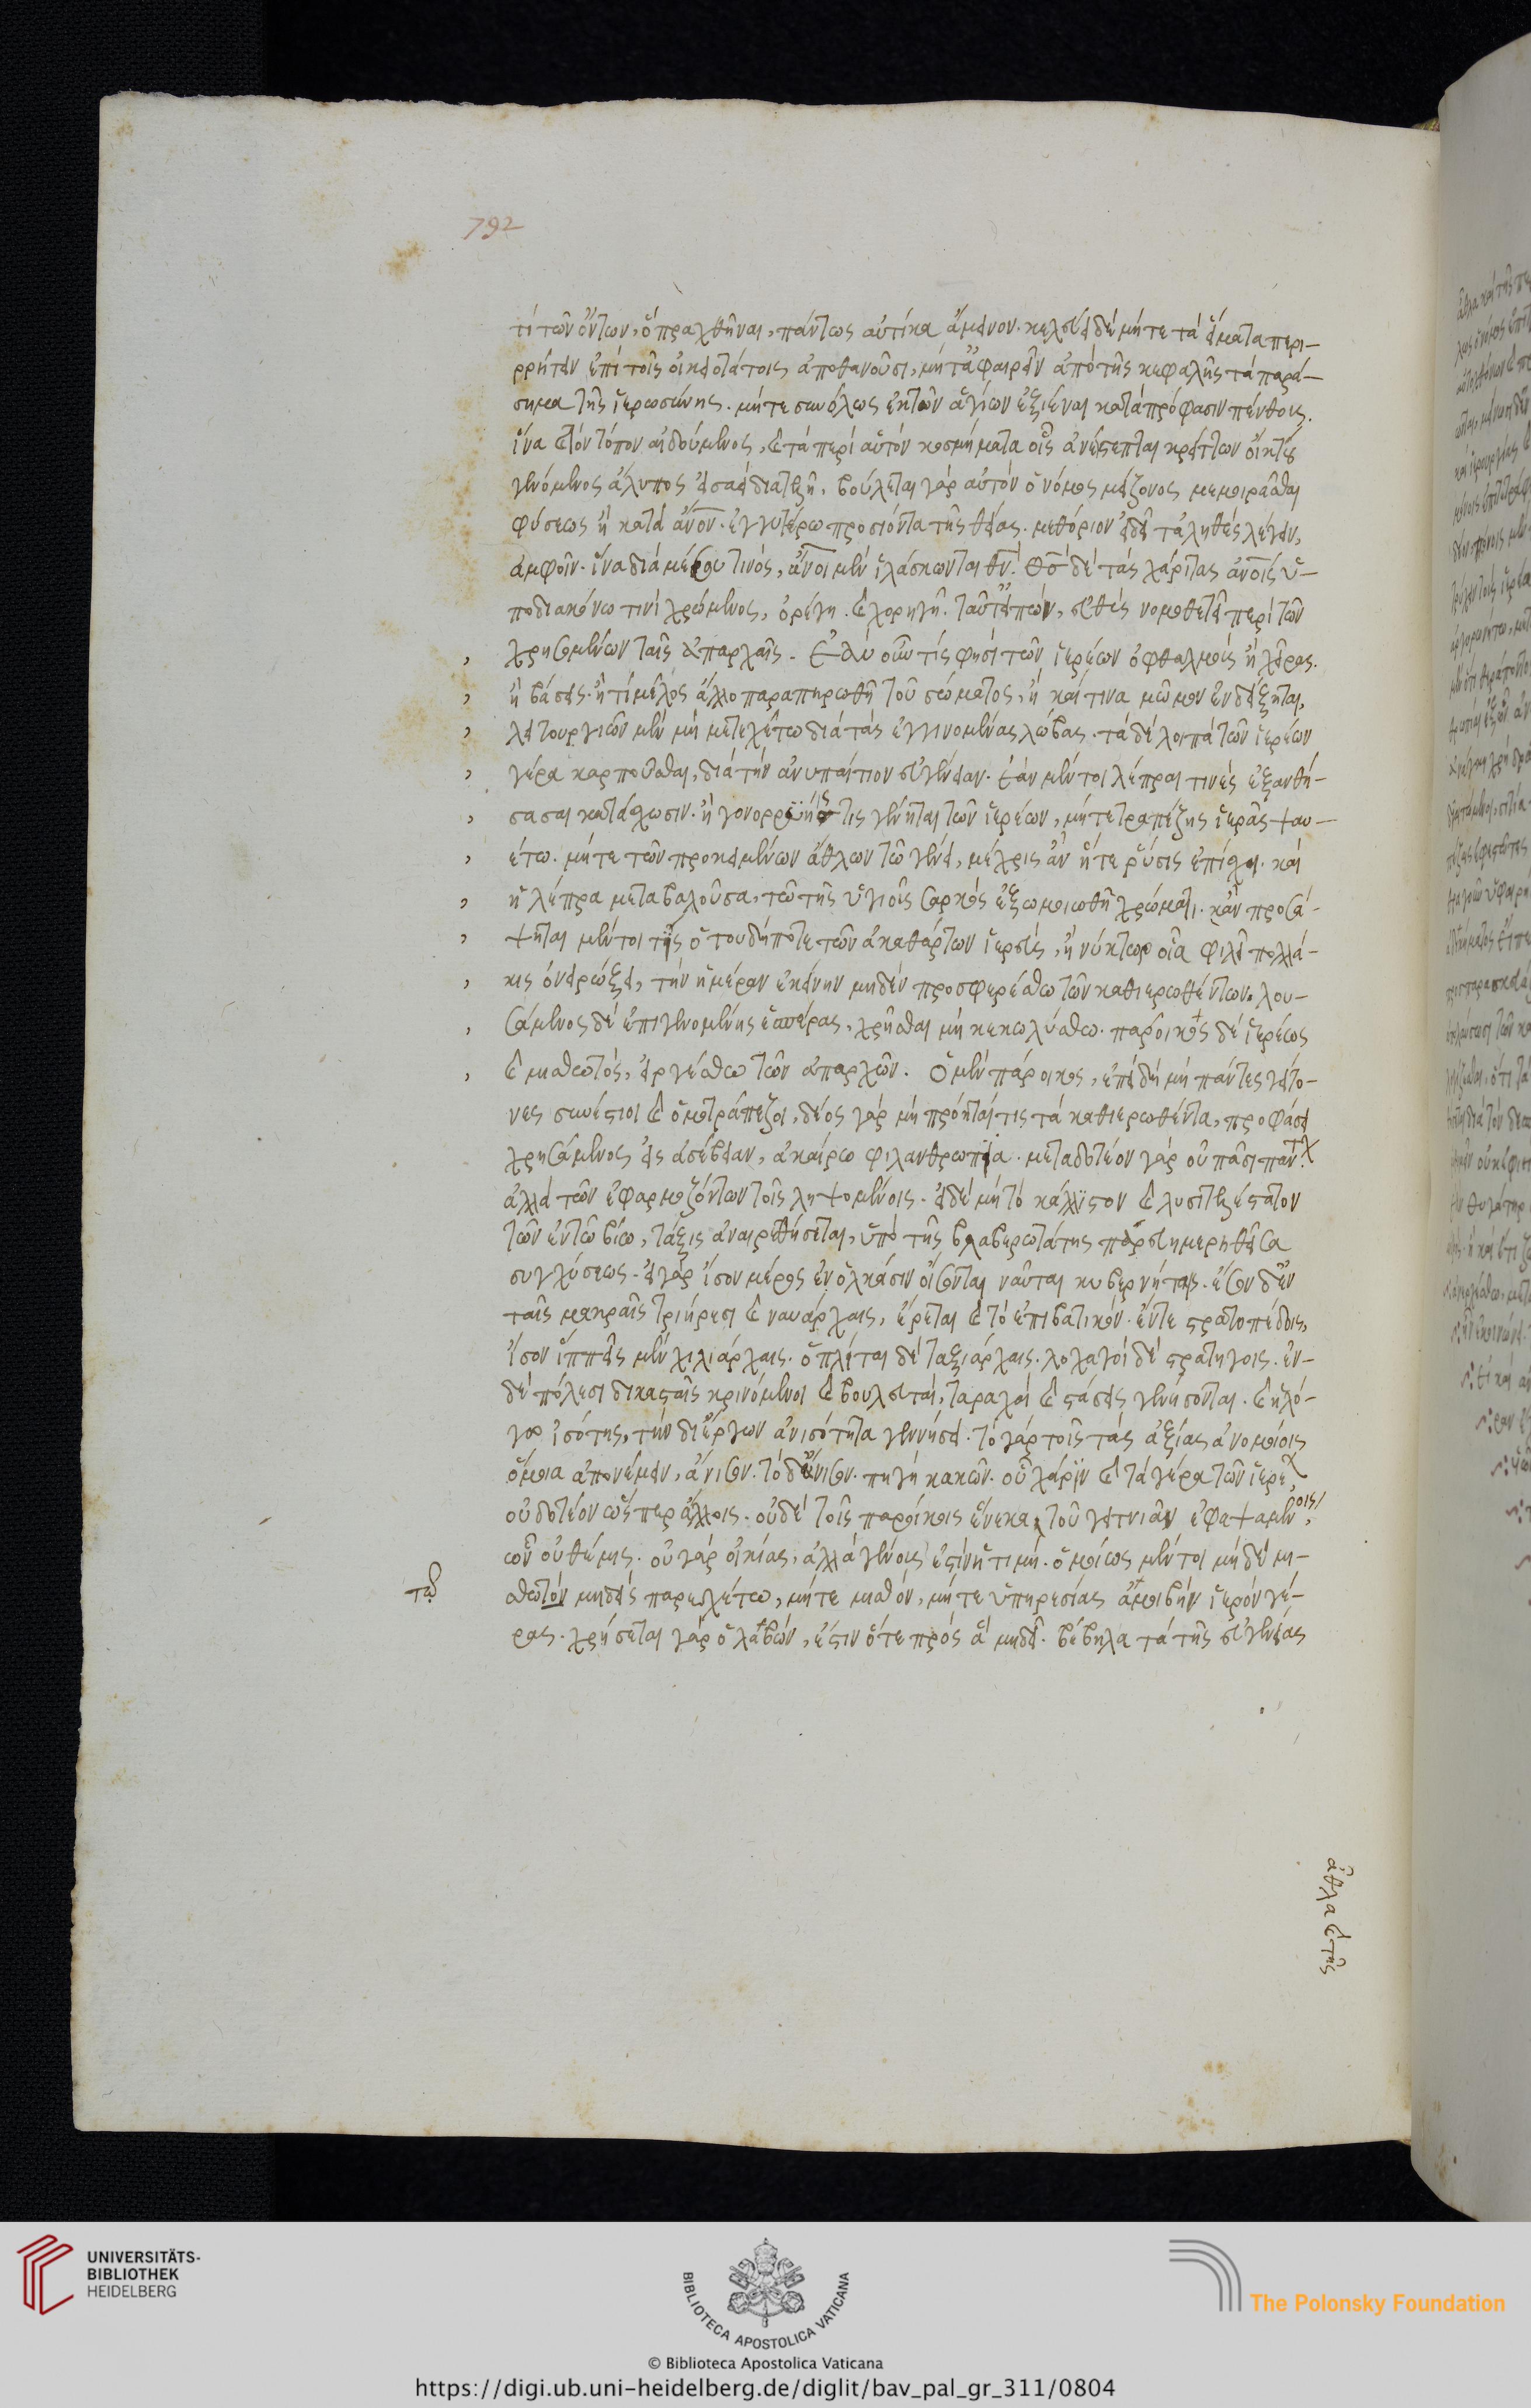 792
τὶ τῶν ὄντων, ὃ πραχθῆναι, πάντως αὐτίκα ἄμεινον. κελεύει δὲ μήτε τὰ εἵματα περι-
ρρήτειν ἐπὶ τοῖς οἰκειοτάτοις ἀποθανοῦσι, μήτ' ἀφαιρεῖν ἀπὸ τῆς κεφαλῆς τὰ παρά-
σημα τῆς ἱερωσύνης. μήτε συνόλως ἐκ τῶν ἁγίων ἐξιέναι κατὰ πρόφασιν πένθους.
ἵνα καὶ τὸν τόπον αἰδούμενος, καὶ τὰ περὶ αὐτὸν κοσμήματα οἷς ἀνέστεπται κρείττων οἴκτου
γενόμενος ἄλυπος εἰσαεὶ διατελῇ. βούλεται γὰρ αὐτὸν ὁ νόμος μείζονος μεμοιρᾶσθαι
φύσεως ἢ κατὰ ἄνον. ἐγγυτέρω προσιόντα τῆς θείας. μεθόριον εἰ δεῖ τἀληθὲς λέγειν,
ἀμφοῖν. ἵνα διὰ μέσου τινός, ἄνοι μὲν ἱλάσκωνται θν. θς δὲ τὰς χάριτας ἀνοις ὑ-
ποδιακόνω τινὶ χρώμενος, ὀρέγῃ. καὶ χορηγῇ. ταῦτ' εἰπών, εὐθὺς νομοθετεῖ περὶ τῶν
χρησομένων ταῖς ἀπαρχαῖς. ἐὰν οὖν τίς φησὶ τῶν ἱερέων ὀφθαλμοὺς ἢ χεῖρας.
ἢ βάσεις. ἢ τὶ μέλος ἄλλο παραπηρωθῇ τοῦ σώματος, ἢ καί τινα μῶμον ἐνδέξηται,
λειτουργιῶν μὲν μὴ μετεχέτω διὰ τὰς ἐγγινομένας λώβας. τὰ δὲ λοιπὰ τῶν ἱερέων
γέρα καρπούσθαι, διὰ τὴν ἀνυπαίτιον εὐγένειαν. ἐὰν μέντοι λέπραι τινὲς ἐξανθή-
σασαι κατάσχωσιν. ἢ γονορρυὴς τις γένηται τῶν ἱερέων, μήτε τραπέζης ἱερᾶς ψαυ-
έτω. μήτε τῶν προκειμένων ἄθλων τῶ γένει, μέχρις ἂν ἥτε ῥύσις ἐπίσχῃ. καὶ
ἡ λέπρα μεταβαλοῦσα, τῶ τῆς ὑγιοῦς σαρκὸς ἐξωμοιωθῇ χρώματι. κἂν προσά-
ψηται μέντοι τῆς ὁτουδήποτε τῶν ἀκαθάρτων ἱερεὺς, ἢ νύκτωρ οἷα φιλεῖ πολλά-
κις ὀνειρώξει, τὴν ἡμέραν ἐκείνην μηδὲν προσφερέσθω τῶν καθιερωθέντων. λου-
σάμενος δὲ ἐπιγενομένης ἑσπέρας, χρῆσθαι μὴ κεκωλύσθω. πάροικος δὲ ἱερέως
καὶ μισθωτός, εἰργέσθω τῶν ἀπαρχῶν. ὁ μὲν πάροικος, ἐπειδὴ μὴ πάντες γείτο-
νες συνέστιοι καὶ ὁμοτράπεζοι, δέος γὰρ μὴ πρόηταί τις τὰ καθιερωθέντα, προφάσει
χρησάμενος εἰς ἀσέβειαν, ἀκαίρω φιλανθρωπία. μεταδοτέον γὰρ οὐ πᾶσι πάντ.
ἀλλὰ τῶν ἐφαρμοζόντων τοῖς ληψομένοις. εἰ δὲ μὴ τὸ κάλλιστον καὶ λυσιτελέστατον
τῶν ἐν τῶ βίω, τάξις ἀναιρεθήσεται, ὑπὸ τῆς βλαβερωτάτης παρευημερηθεῖσα
συγχύσεως. εἰ γὰρ ἴσον μέρος ἐν ὁλκάσιν οἴσονται ναῦται κυβερνήταις. ἴσον δ' ἐν
ταῖς μακραῖς τριήρεσι καὶ ναυάρχαις, ἐρέται καὶ τὸ ἐπιβατικόν. ἔν τε στρατοπέδοις,
ἴσον ἱππεῖς μὲν χιλιάρχαις. ὁπλῖται δὲ ταξιάρχαις. λοχαγοὶ δὲ στρατηγοῖς. ἐν-
δὲ πόλεσι δικασταῖς κρινόμενοι καὶ βουλευταί, ταραχαὶ καὶ στάσεις γενήσονται. καὶ ἡ λό-
γω ἰσότης, τὴν δι' ἔργων ἀνισότητα γεννήσει. τὸ γὰρ τοῖς τὰς ἀξίας ἀνομοίοις
ὅμοια ἀπονέμειν, ἄνισον. τὸ δ' ἄνισον. πηγὴ κακῶν. οὗ χάριν καὶ τὰ γέρα τῶν ἱερέ
οὐ δοτέον ὥσπερ ἄλλοις. οὐδὲ τοῖς παροίκοις ἕνεκα τοῦ γειτνιᾶν ἐφαψαμένοις,
ὧν οὐ θέμις. οὐ γὰρ οἰκίας, ἀλλὰ γένους ἐστὶν ἡ τιμή. ὁμοίως μέντοι μὴδὲ μι-
σθωτὸν μηδεὶς παρεχέτω, μήτε μισθόν, μήτε ὑπηρεσίας ἀμοιβὴν ἱερὸν γέ-
ρας. χρήσεται γὰρ ὁ λαβών, ἔστιν ὅτε πρὸς ἃ μὴ δεῖ. βέβηλα τὰ τῆς εὐγενείας
ἆθλα καὶ τῆς
UNIVERSITÄTS-
BIBLIOTHEK
HEIDELBERG
BIBLIOTECA APOSTOLICA VATICANA
The Polonsky Foundation
© Biblioteca Apostolica Vaticana
https://digi.ub.uni-heidelberg.de/diglit/bav_pal_gr_311/0804